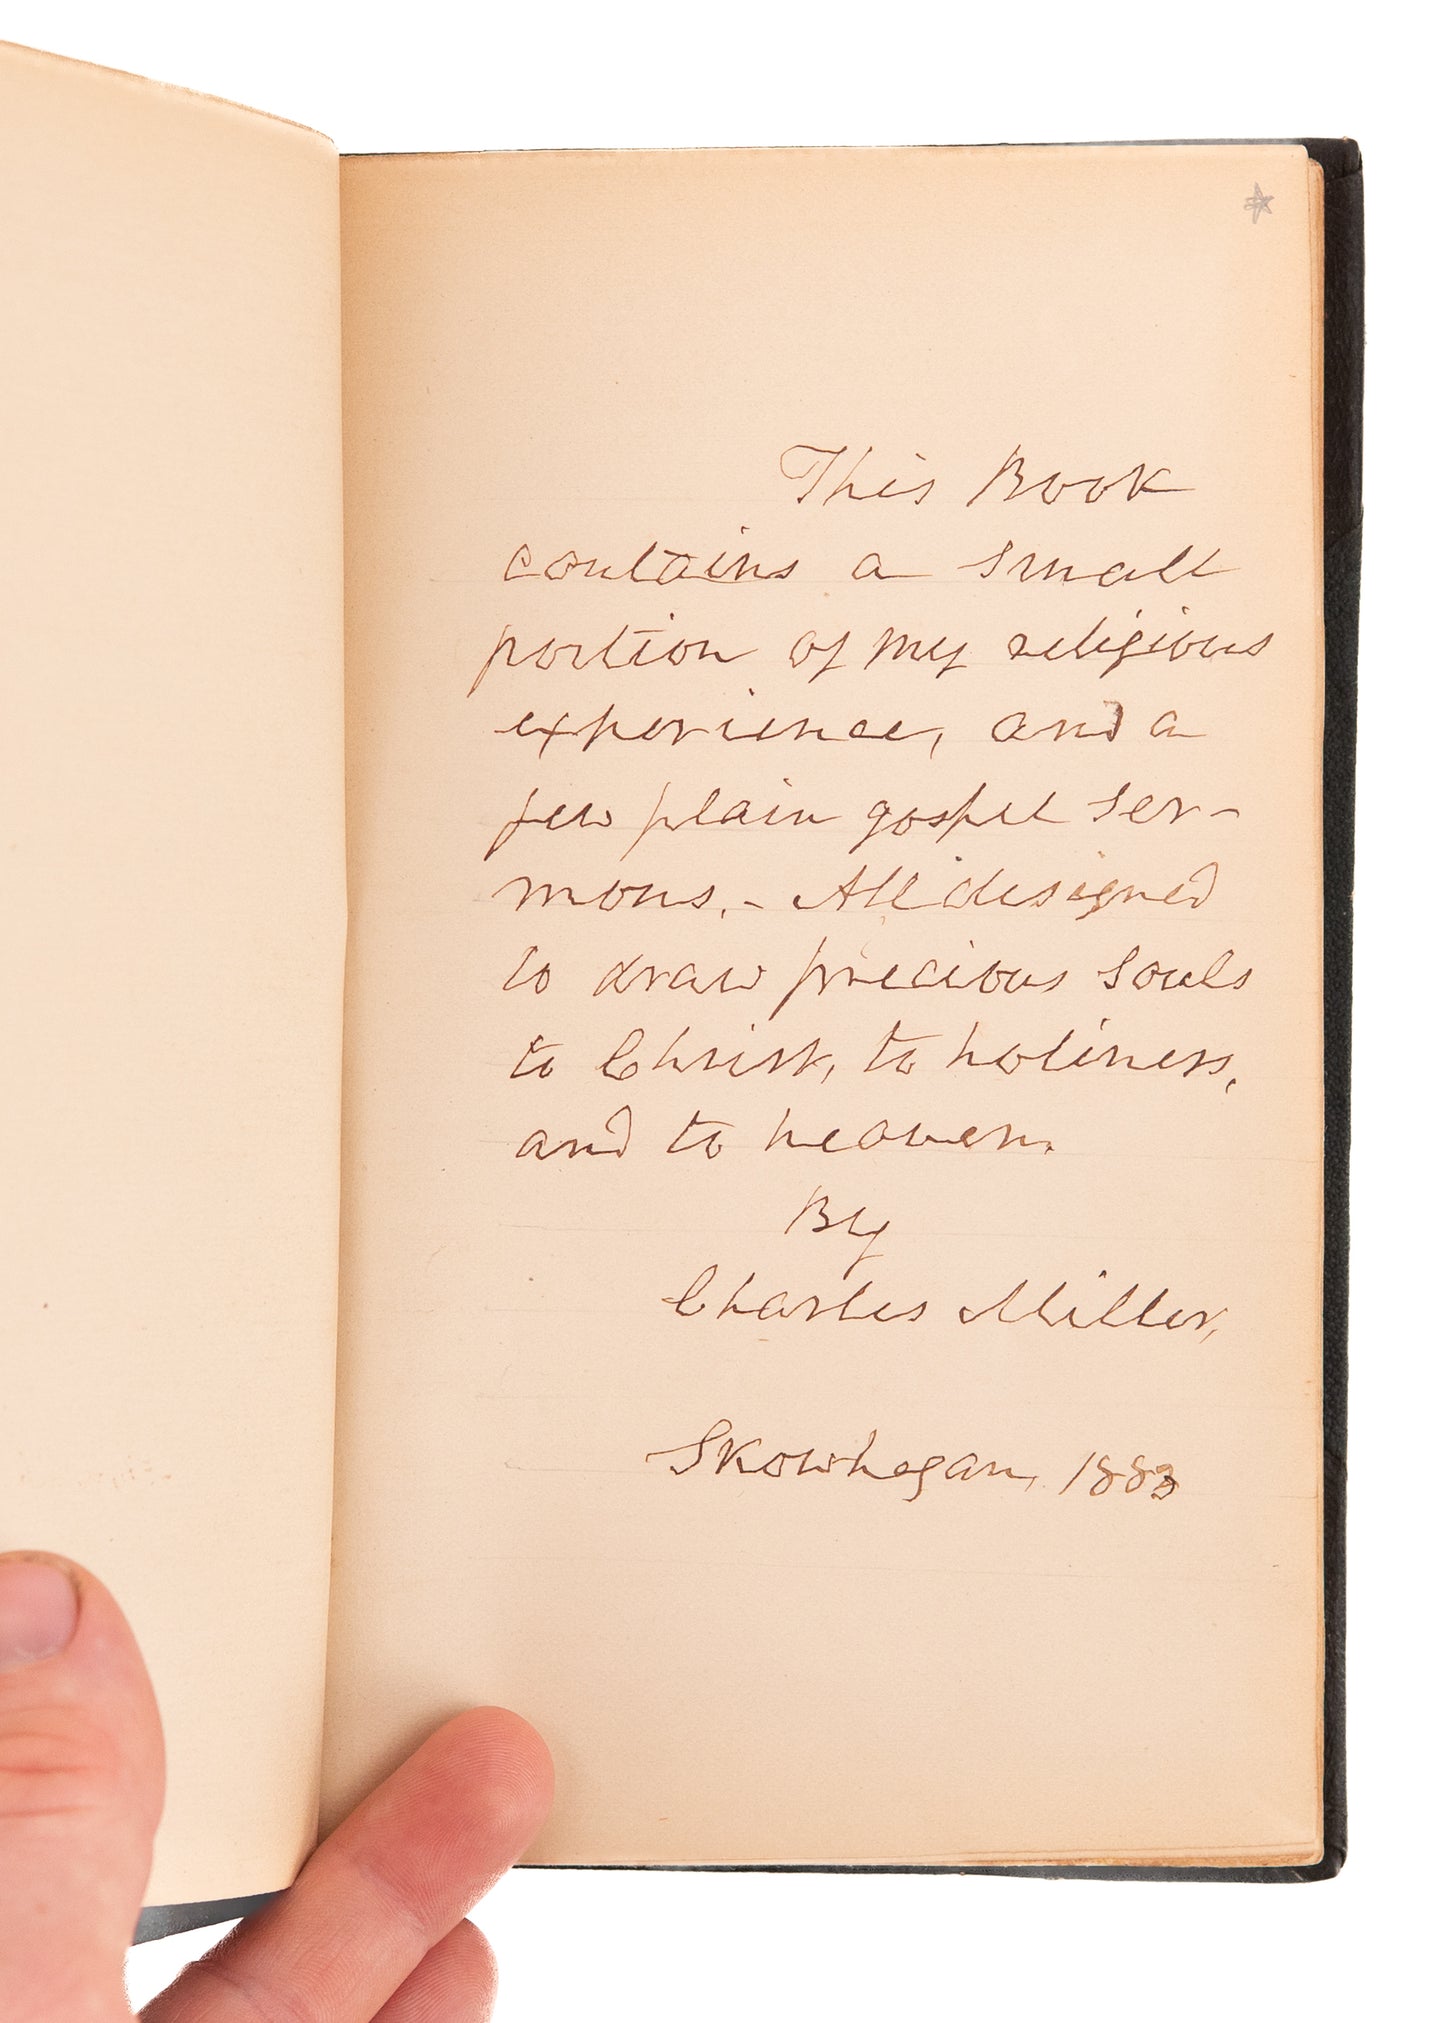 This Book
contains a small
portion of my religious
experience, and a
few plain gospel ser-
mons. - All designed
to draw precious souls
to Christ, to holiness,
and to heaven.
By
Charles Miller,
Skowhegan, 1883